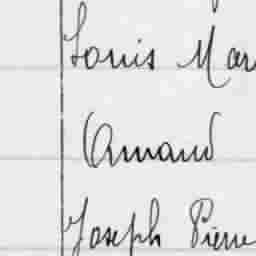 Louis Mar
Armand
Joseph Pierre